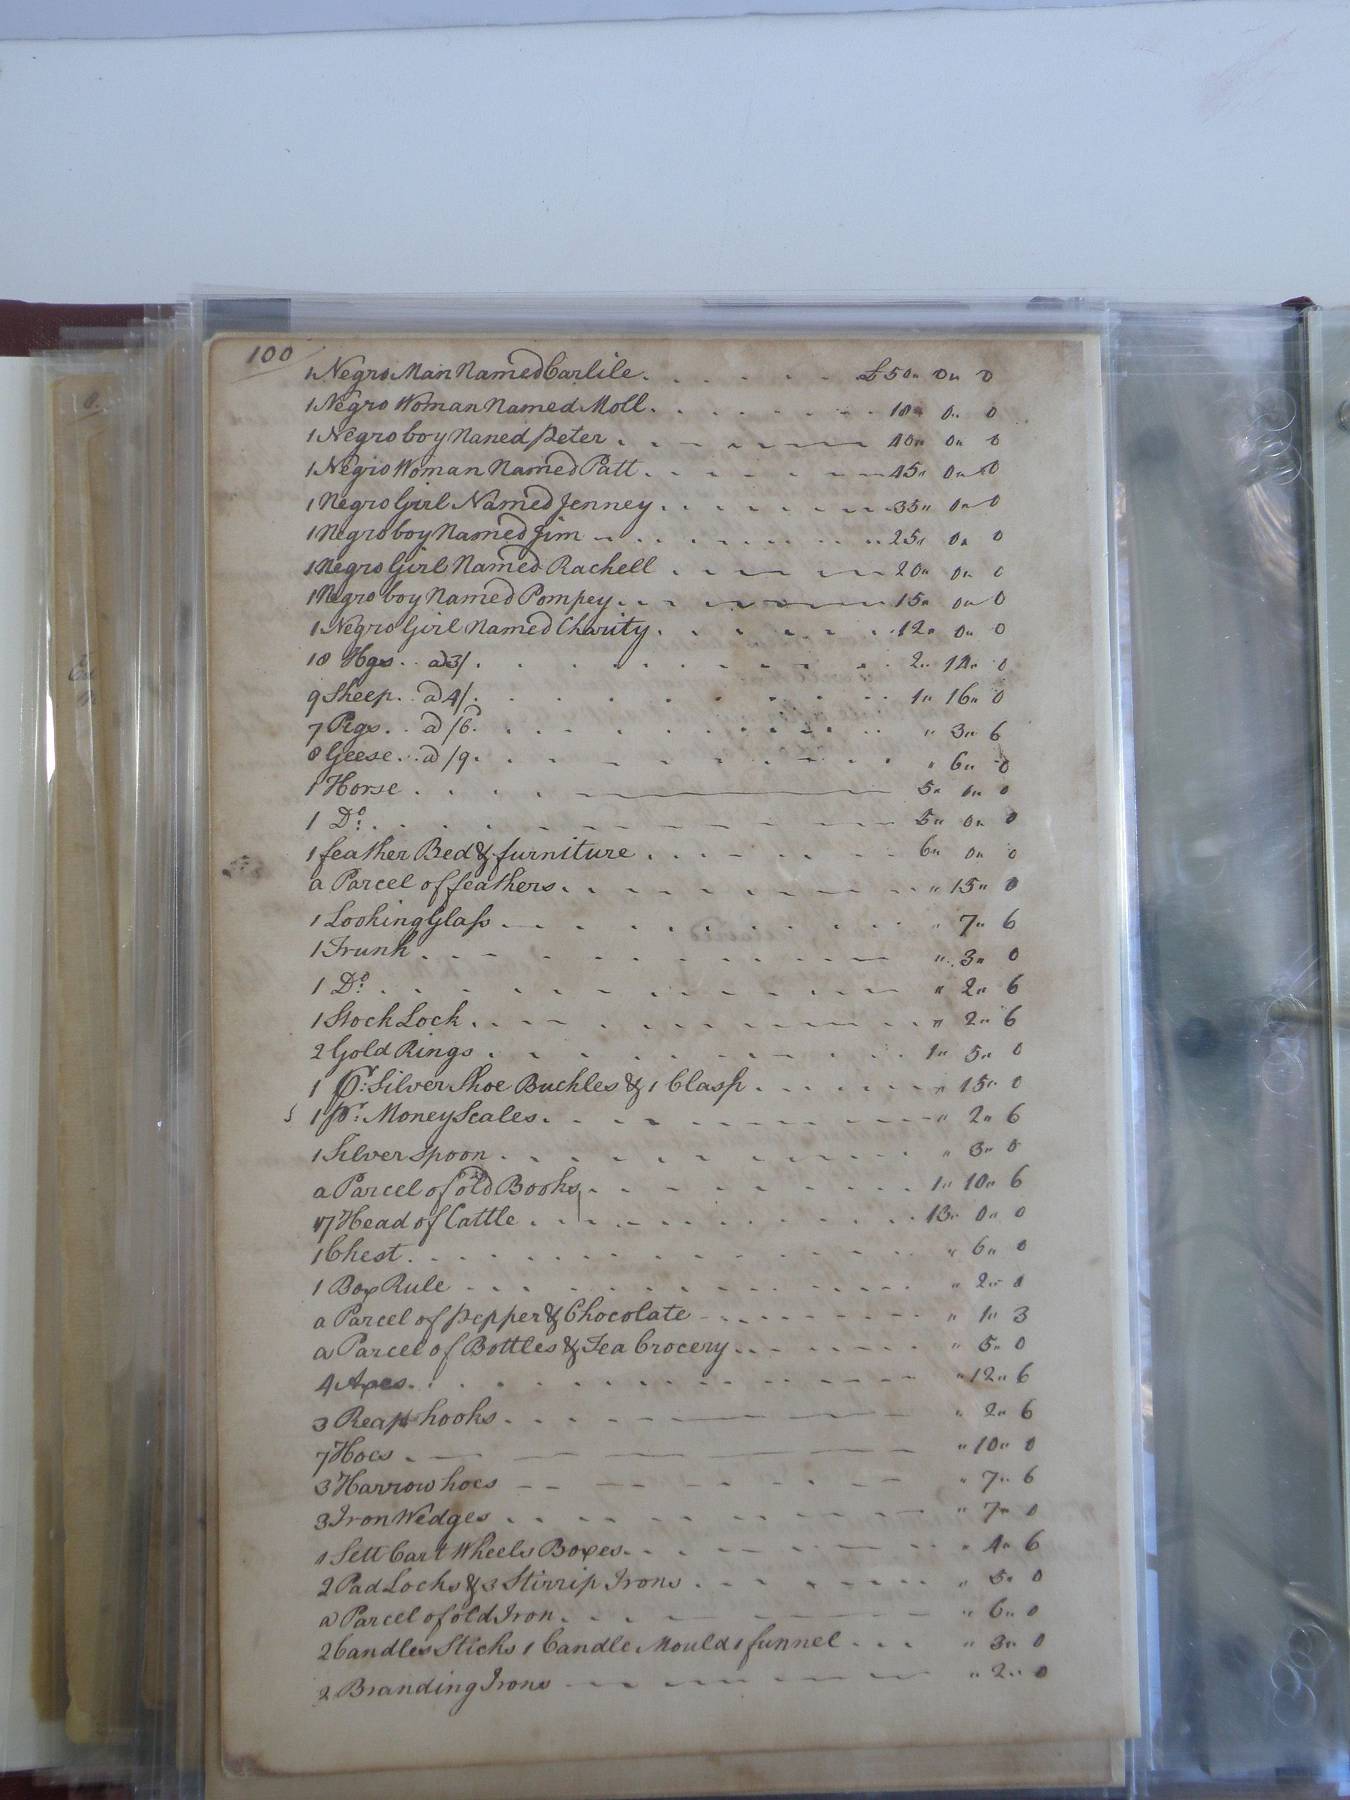 100
1 Negro Man Named Carlile . . . . . . £50 " 0 " 0
1 Negro Woman Named Moll . . . . . . 10 " 0 " 0
1 Negro boy Naned Peter . . . . . . 40 " 0 " 0
1 Negro Woman Named Patt . . . . . . 45 " 0 " 0
1 Negro Girl Named Jenney . . . . . . 35 " 0 " 0
1 Negro boy Named Jim . . . . . . 25 " 0 " 0
1 Negro Girl Named Rachell . . . . . . 20 " 0 " 0
1 Negro boy Named Pompey . . . . . . 15 " 0 " 0
1 Negro Girl Named Charity . . . . . . 12 " 0 " 0
18 Hgs . . a 3/ . . . . . . 2 " 14 " 0
9 Sheep . . a 4/ . . . . . . 1 " 16 " 0
7 Pigs . . a /6d . . . . . . " 3 " 6
8 Geese . . a /9 . . . . . . " 6 " 0
1 Horse . . . . . . 5 " 0 " 0
1 Do . . . . . . 5 " 0 " 0
1 feather Bed & furniture . . . . . . 6 " 0 " 0
a Parcel of feathers . . . . . . " 15 " 0
1 Looking Glass . . . . . . " 7 " 6
1 Trunk . . . . . . " 3 " 0
1 Do . . . . . . " 2 " 6
1 Stock Lock . . . . . . " 2 " 6
2 Gold Rings . . . . . . 1 " 5 " 0
1 pr. Silver Shoe Buckles & 1 Clasp . . . . . . " 15 " 0
1 pr. Money Scales . . . . . . " 2 " 6
1 Silver Spoon . . . . . . " 3 " 0
a Parcel of old Books . . . . . . 1 " 10 " 6
17 Head of Cattle . . . . . . 13 " 0 " 0
1 Chest . . . . . . " 6 " 0
1 Box Rule . . . . . . " 2 " 0
a Parcel of Pepper & Chocolate . . . . . . " 1 " 3
a Parcel of Bottles & Tea Crocery . . . . . . " 5 " 0
4 Axes . . . . . . " 12 " 6
3 Reap hooks . . . . . . " 2 " 6
7 Hoes . . . . . . " 10 " 0
3 Harrow hoes . . . . . . " 7 " 6
3 Iron Wedges . . . . . . " 7 " 0
1 Sett Cart Wheels Boxes . . . . . . " 4 " 6
2 Pad Locks & 3 Stirrip Irons . . . . . . " 5 " 0
a Parcel of old Iron . . . . . . " 6 " 0
2 Candles Sticks 1 Candle Mould 1 funnel . . . " 3 " 0
2 Branding Irons . . . . . . " 2 " 0